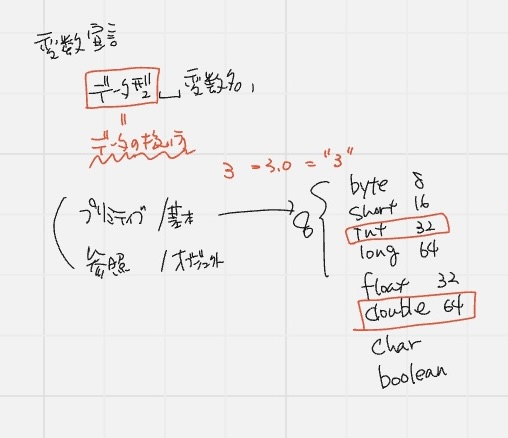 変数宣言
データ型 変数名;
"
データの扱い方
3 = 3.0 = "3"
プリミティブ / 基本 → 8
参照 / オブジェクト
byte 8
short 16
int 32
long 64
float 32
double 64
char
boolean